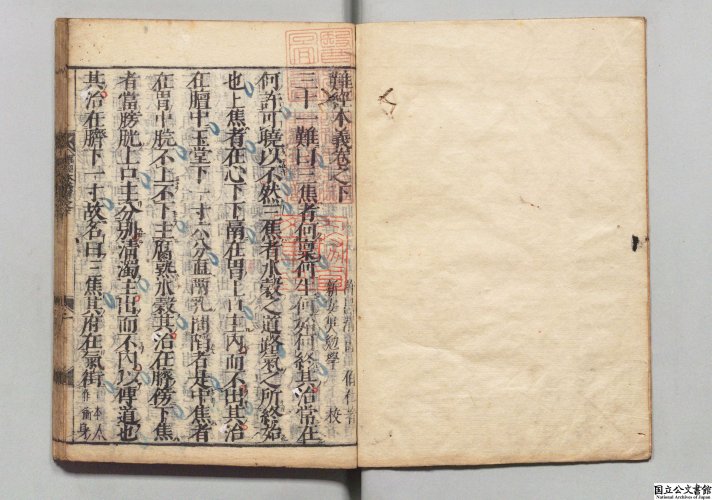 難經本義卷之下
許昌滑壽伯仁著
新安吳勉學校
三十一難曰三焦者何稟何生何始何終其治常在
何許可曉以不然三焦者水穀之道路氣之所終始
也上焦者在心下下膈在胃上口主內而不出其治
在膻中玉堂下一寸六分直兩乳間陷者是中焦者
在胃中脘不上不下主腐熟水穀其治在臍傍下焦
者當膀胱上口主分別清濁主出而不內以傳道也
其治在臍下一寸故名曰三焦其府在氣街
國立公文書館
National Archives of Japan